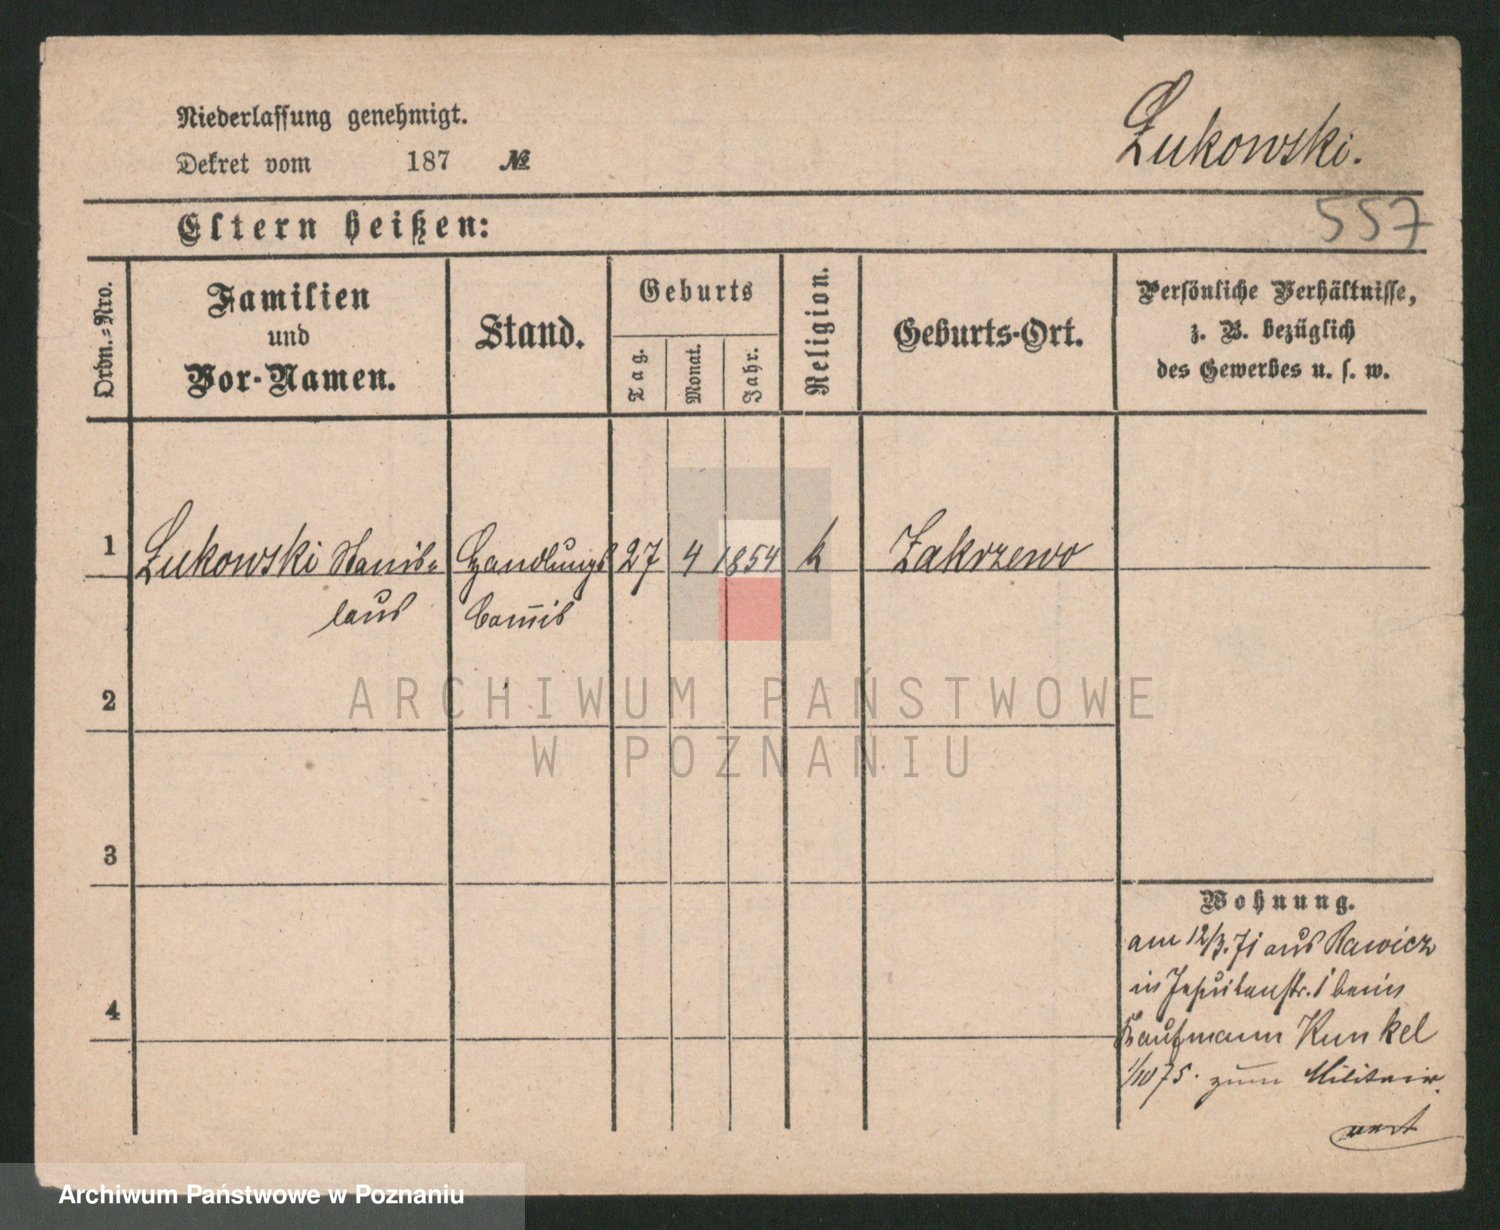 Niederlassung genehmigt.
Dekret vom 187 №
Łukowski.
557
Eltern heißen:
Ordn.-Nro.
Familien
und
Vor-Namen.
Stand.
Geburts
Tag.
Monat.
Jahr.
Religion.
Geburts-Ort.
Persönliche Verhältnisse,
z. B. bezüglich
des Gewerbes u. s. w.
1 Łukowski Stanis= Handlungs 27 4 1854 k Zakrzewo
laus Com̅is
2
ARCHIWUM PAŃSTWOWE
W POZNANIU
3
Wohnung.
am 12/3. 71 aus Rawicz
4 in Jesuitenstr. 1 beim
Kaufmann Kunkel
1/10 75. zum Militair.
Archiwum Państwowe w Poznaniu